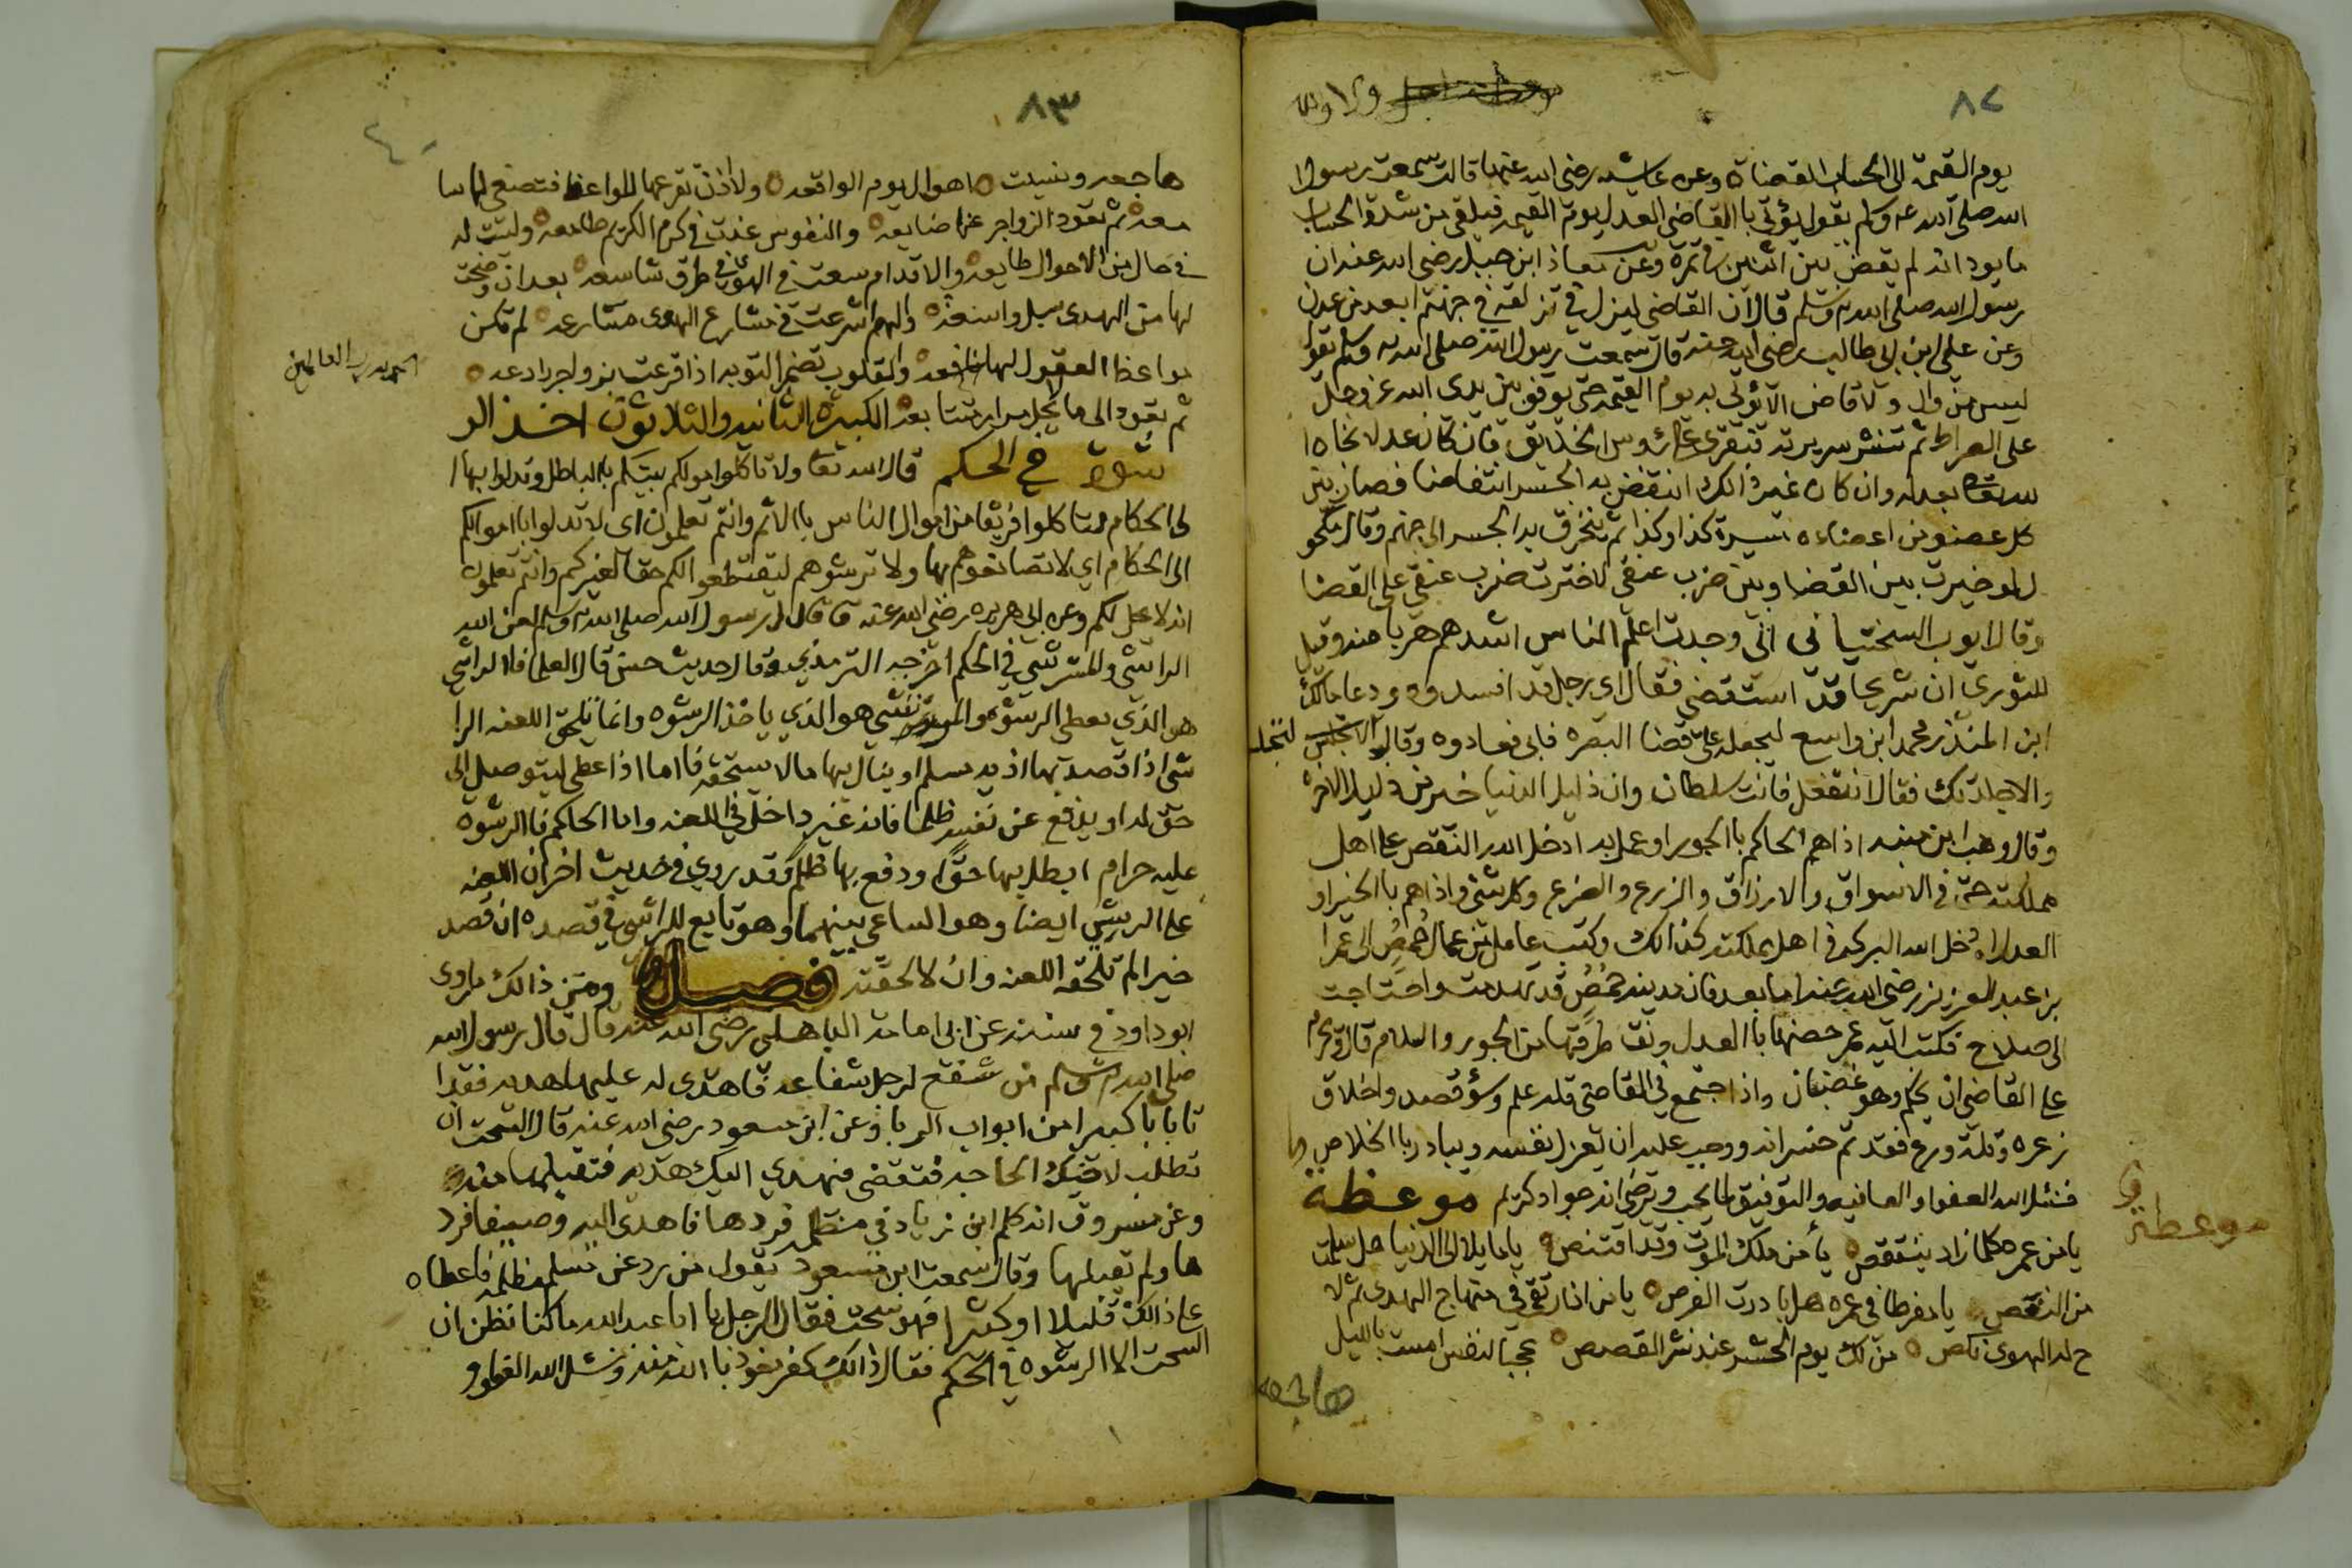 ٨٢
يوم القيمة الى الحساب القضاة وعن عايشه رضي الله عنها قالت سمعت رسول ا
الله صلى الله عليه وسلم يقول يؤتى باالقاضي العدل يوم القيمه فيلقى من شدة الحساب
ما يود انه لم يقض بين اثنين في تمرة وعن معاذ ابن جبل رضي الله عنه ان
رسول الله صلى الله عليه وسلم قال ان القاضي لينزل في مزلقه في جهنم ابعد من عدن
وعن علي ابن ابي طالب رضي الله عنه قال سمعت رسول الله صلى الله عليه وسلم يقول
ليس من وال ولا قاض الا يؤتى به يوم القيمه حتى يوقف بين يدي الله عز وجل
على الصراط ثم تنشر سريرته فتقرى على رؤس الخلايق فان كان عدلا نجاه ا
لله تعالى بعدله وان كان غير ذالك انتفض به الجسر انتفاضا فصار بين
كل عضو من اعضاءه مسيرة كذا وكذا ثم ينخرق به الجسر الى جهنم وقال مكحو
ل لو خيرت بين القضا وبين ضرب عنقي لاخترت ضرب عنقي على القضا
وقال ايوب السختيا نى اني وجدت اعلم الناس اشدهم هربا منه وقيل
للثوري ان شريحا قد استقضي فقال اي رجل قد افسدوه ودعا مالك
ابن المنذر محمد ابن واسع ليجعله على قضا البصره فابى فعادوه وقال
والاجلدتك فقال ان تفعل فانت سلطان وان ذليل الدنيا خير من ذليل الاخره
وقال وهب ابن منبه اذا هم الحاكم باالجور او عمل به ادخل الله النقص على اهل
مملكته حتى في الاسواق والارزاق والزرع والضرع وكل شئ واذا هم باالخير او
العدل ادخل الله البركه في اهل مملكته كذالك وكتب عامل من عمال حمص الى عمرا
بن عبد العزيز رضي الله عنه اما بعد فان مدينه حمص قد تهدمت واحتاجت
الى صلاح فكتب اليه عمر حصنها باالعدل ونق طرقها من الجور والسلام قال ويحرم
على القاضي ان يحكم وهو غضبان واذا اجتمع في القاضي قلة علم وسؤ قصد واخلاق
زعره وقلة ورع فقد تم خسرانه ووجب عليه ان يعزل نفسه ويبادر باالخلاص
فنسئل الله العفو والعافيه والتوفيق لما يحب ويرضى انه جواد كريم موعظة
يا من عمره كلما زاد ينتقص يأ من ملك الموت وقد اقتنص يا مايلا الى الدنيا هل سلمت
من النقص يا مفرطا في عمره هل بادرت الفرص يا من اذا رتقى في منهاج الهدى ثم لا
ح له الهوى نكص من لك يوم الحشر عند نشر القصص عجبا لنفس امست بالليل
موعظة
٨٣
هاجعه ونسيت اهوال يوم الواقعه ولاذن تقرعها المواعظ فتصغي لها سا
معه ثم تعود الزواجر عنها ضايعه والنفوس غدت في كرم الكريم طامعه وليست له
في حال من الاحوال طايعه والاقدام سعت في الهوى في طرق شاسعه بعد ان وضحت
لها من الهدى سبل واسعه والهمم شرعت في مشارع الهوى مشارعه لم تكن
مواعظ العقول لها نافعه والقلوب تضمر التوبه اذا قرعت بزواجر رادعه
الحمد لله رب العالمين
ثم تعود الى ما يحل مرارا متتابعه الكبيرة الثانيه والثلاثون اخذ الر
شوة في الحكم قال الله تعا ولا تاكلوا اموالكم بينكم باالباطل وتدلوا بها ا
لى الحكام لتاكلوا فريقا من اموال الناس باالاثم وانتم تعلمون اى لا تدلوا بااموالكم
الى الحكام اي لا تصانعوهم بها ولا ترشوهم ليقتطعوا لكم حقا لغيركم وانتم تعلمون
انه لا يحل لكم وعن ابي هريره رضي الله عنه قا قال رسول الله صلى الله عليه وسلم لعن الله
الراشي والمرتشي في الحكم اخرجه الترمذي وقال حديث حسن قال العلما فاالراشي
هو الذي يعطي الرشوه والمرتشي هو الذي ياخذ الرشوه وانما تلحق اللعنه الرا
شي اذا قصد بها اذيه مسلم او ينال بها مالا يستحقه فاما اذا اعطى ليتوصل الى
حق له او يدفع عن نفسه ظلما فانه غير داخل في اللعنه واما الحاكم فاالرشوة
عليه حرام ابطل بها حقا او دفع بها ظلما وقد روي في حديث اخر ان اللعنه
على الريش ايضا وهو الساعي بينهما وهو تابع للراشي في قصده ان قصد
خيرا لم تلحقه اللعنه وان لا لحقته فصل ومن ذالك ما روى
ابو داود في سننه عن ابي امامة الباهلي رضي الله عنه قال قال رسول الله
صلى الله عليه وسلم من شفع لرجل شفاعه فاهدى له عليها هديه فقد ا
تا بابا كبيرا من ابواب الربا وعن ابن مسعود رضي الله عنه قال السحت ان
تطلب لاخيك الحاجه فتقضى فيهدي اليك هديه فتقبلها منه
وعن مسروق انه كلم ابن زياد في مظلمه فردها فاهدى اليه وصيفا فرد
ها ولم يقبلها وقال سمعت ابن مسعود يقول من رد عن مسلم مظلمه فاعطاه
على ذالك قليلا او كثيرا فهو سحت فقال الرجل يا ابا عبد الله ما كنا نظن ان
السحت الا الرشوه في الحكم فقال ذالك كفر نعوذ باالله منه ونسئل الله العفو و